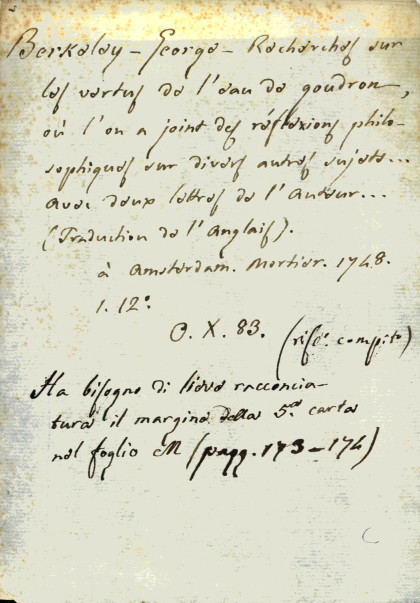 Berkeley - George - Recherches sur
les vertus de l'eau de goudron,
où l'on a joint des réflexions philo-
sophiques sur divers autres sujets...
avec deux lettres de l'Auteur...
(Traduction de l'Anglais).
à Amsterdam. Mortier. 1748.
1. 12°.
O. X. 83.
compito)
Ha bisogno di lieve racconcia-
tura il margine della 5.a carta
nel foglio M (pagg. 173-174)